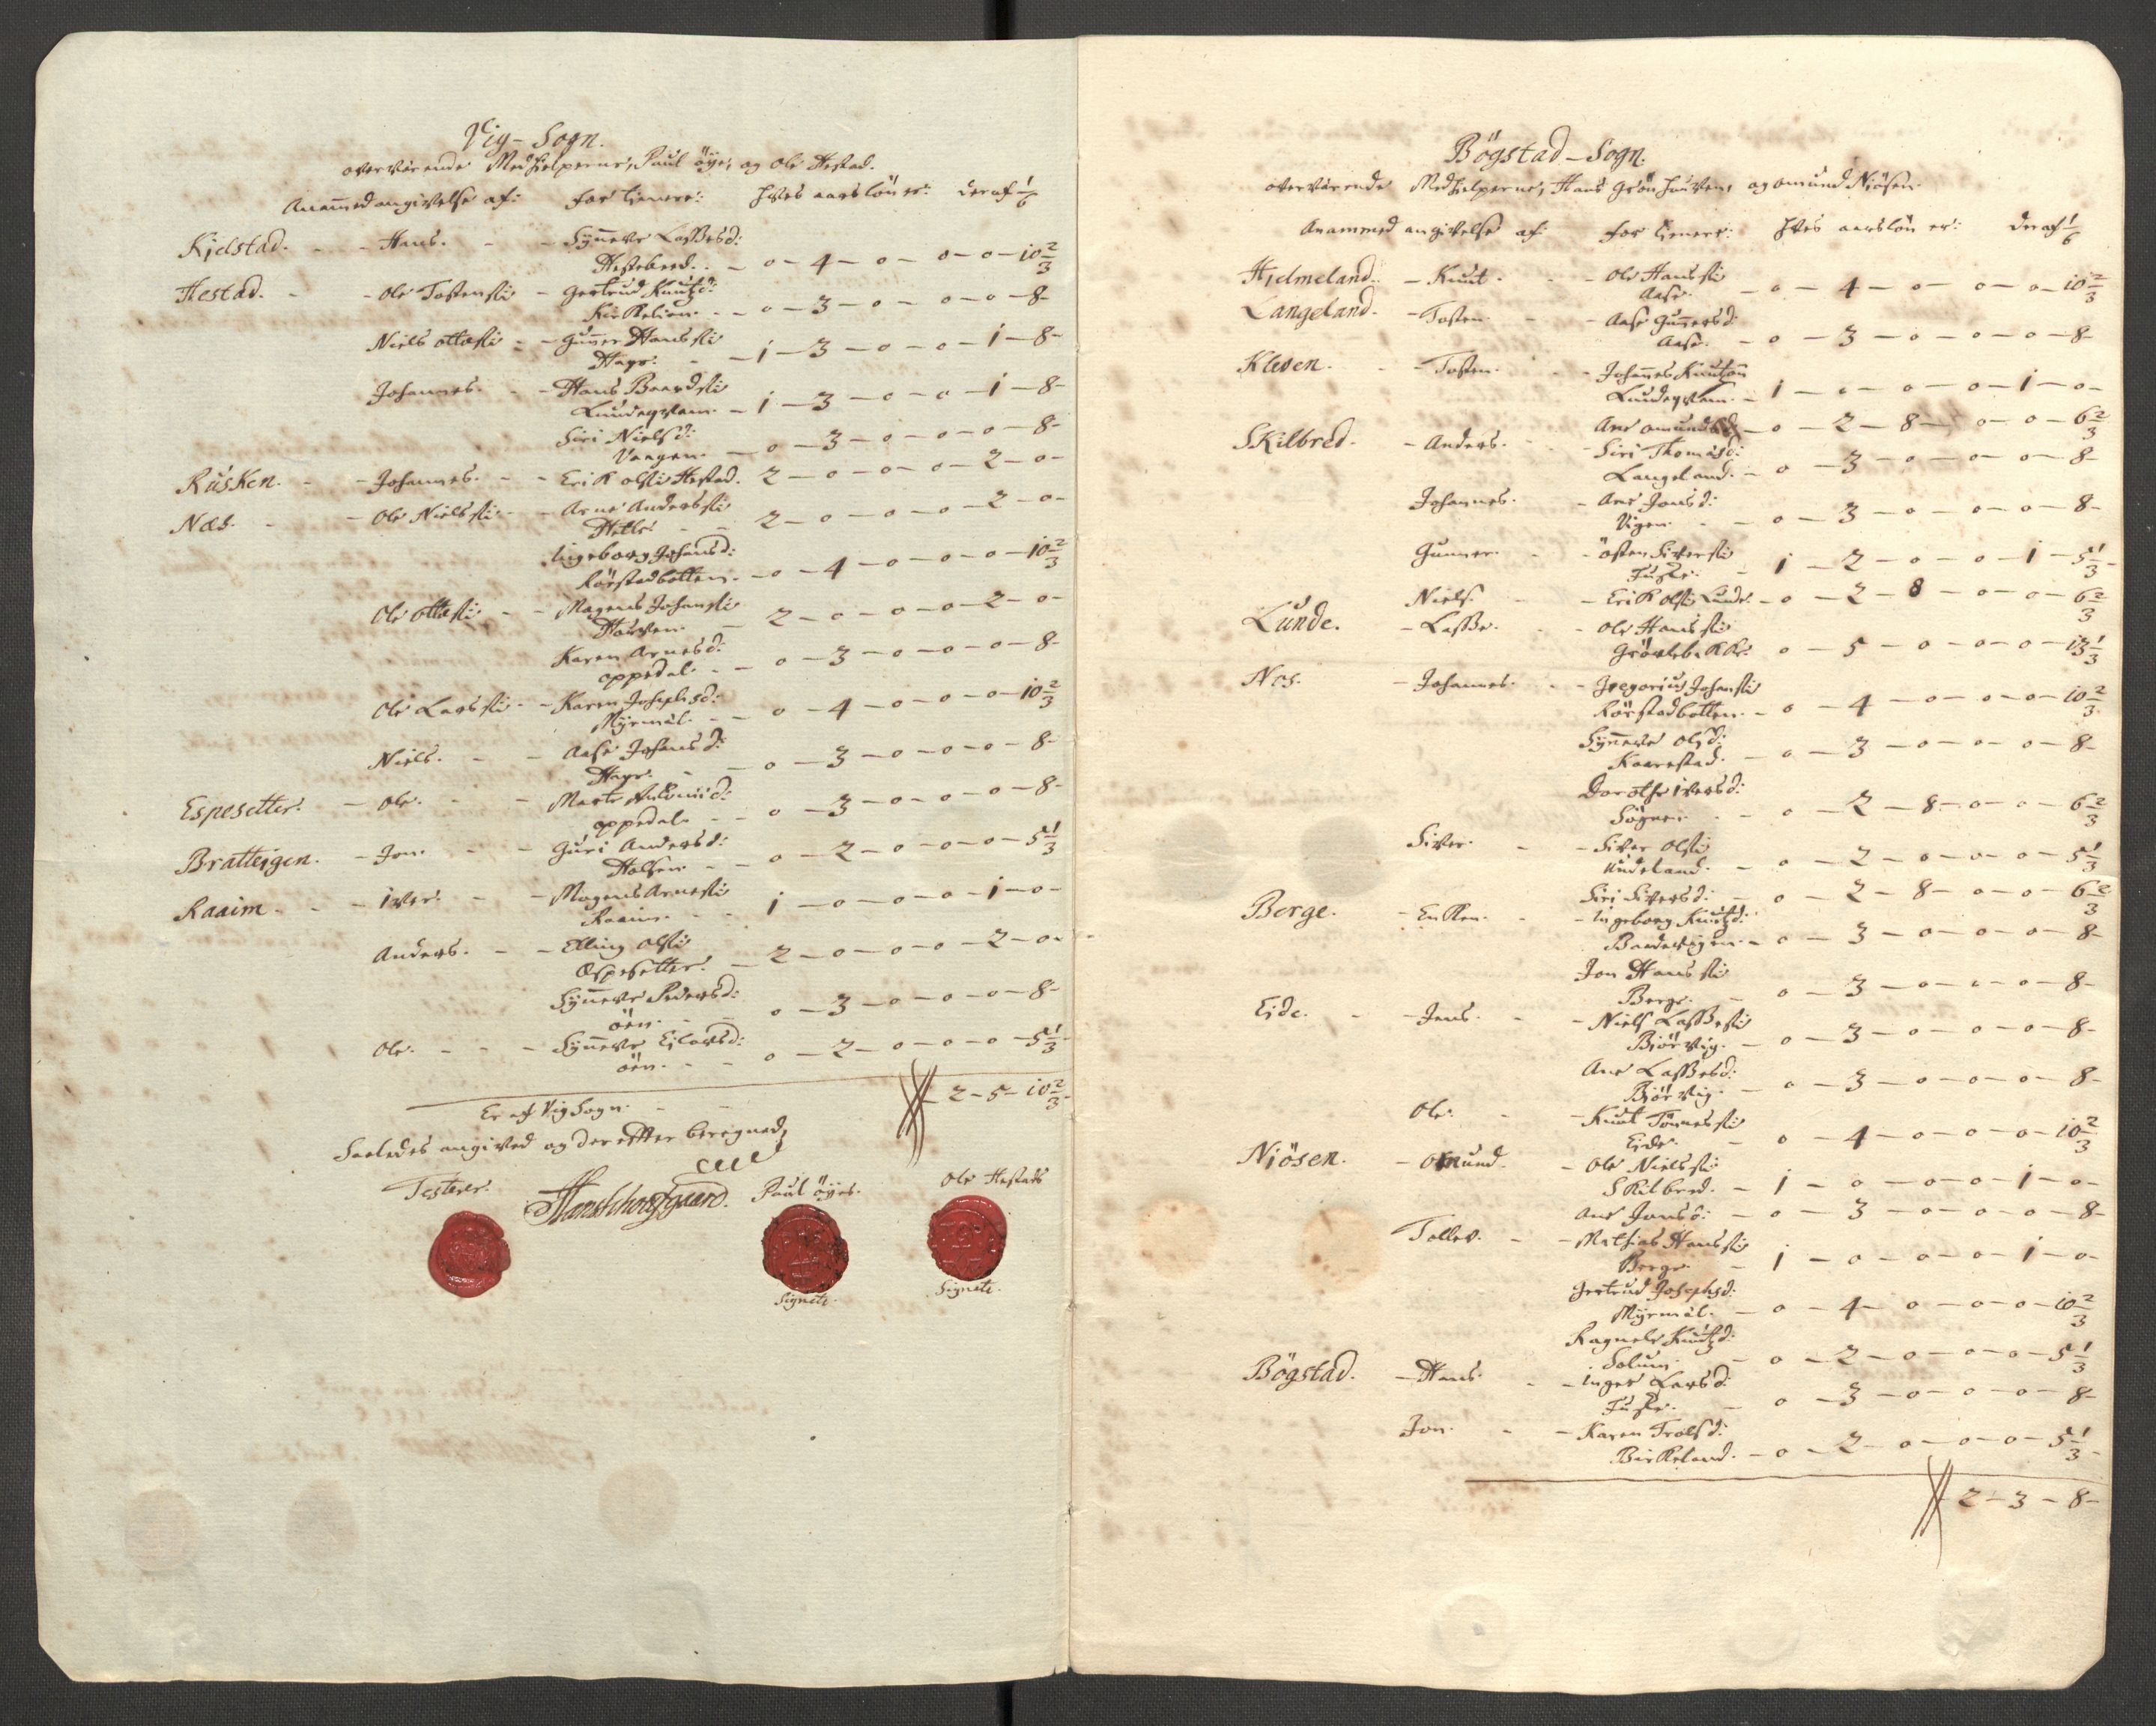 Vig-Sogn.
overværende Medhielperne, Paul öye, og Ole Hestad.
Anammed angivelse af: for tienere: Hves aarslön er: deraf 1/6
Kjelstad. - Hans. - Synneve Lassesd:
Hestebeed. - 0 - 4 - 0 - 0 - 0 - 10 2/3
Hestad. - Ole Tostensti - Gertrud Knutzd:
- 0 - 3 - 0 - 0 - 0 - 8 -
Niels ottesti - Guner Hanssti
Hage. - 1 - 3 - 0 - 0 - 1 - 8 -
Johannes. - Hans Baardsti
Lundeqvam. - 1 - 3 - 0 - 0 - 1 - 8 -
Siri Nielsd:
Vaagen. - 0 - 3 - 0 - 0 - 0 - 8 -
Rusken. - Johannes. - Erik olsti Hestad. 2 - 0 - 0 - 0 - 2 - 0 -
Næs. - Ole Nielssti - Arne Anderssti
Helle. - 2 - 0 - 0 - 0 - 2 - 0 -
Ingeborg Johansd:
Rörstadbotten. - 0 - 4 - 0 - 0 - 0 - 10 2/3
Ole ottesti - Magens Johansti
2 - 0 - 0 - 0 - 2 - 0 -
Karen Arnesd:
oppedal. - 0 - 3 - 0 - 0 - 0 - 8 -
Ole Larssti - Karen Josephsd:
Myrmæl. - 0 - 4 - 0 - 0 - 0 - 10 2/3
Niels. - Aase Johansd:
Hage. - 0 - 3 - 0 - 0 - 0 - 8 -
Espesetter. - Ole. - Marte
oppedal. - 0 - 3 - 0 - 0 - 0 - 8 -
Bratteigen. - Jon. - Guri Andersd:
Holsen. - 0 - 2 - 0 - 0 - 0 - 5 1/3
Raaim. - iver. - Magens Arnesti
Raaim. - 1 - 0 - 0 - 0 - 1 - 0 -
Anders. - Elling olsti
Espesetter. - 2 - 0 - 0 - 0 - 2 - 0 -
Synneve Pedersd:
öen. - 0 - 3 - 0 - 0 - 0 - 8 -
Ole. - Synneve Ejlersd:
öen. - 0 - 2 - 0 - 0 - 0 - 5 1/3
Er af Vig Sogn. 2 - 5 - 10 2/3
Saaledes angived og derefter beregned,
Testerer. Paul öyes. Ole Hestads
Signete. Signete.
Bögstad-Sogn.
overværende Medhielperne, Hans Grönhauven, og omund Niösen.
Anammed angivelse af: for tienere: Hves aarslön er: deraf 1/6
Hjelmeland. - Knut. - Ole Hanssti
Aase. - 0 - 4 - 0 - 0 - 0 - 10 2/3
Langeland. - Tosten. - Aase Gunersd:
Aase. - 0 - 3 - 0 - 0 - 0 - 8 -
Kleven. - Tosten. - Johanes Knutzøn
Lundeqvam. - 1 - 0 - 0 - 0 - 1 - 0 -
Ane omundsd: - 0 - 2 - 8 - 0 - 0 - 6 2/3
Skilbred. - Anders. - Siri Thomasd:
Langeland. - 0 - 3 - 0 - 0 - 0 - 8 -
Johannes. - Ane Jonsd:
Vigen. - 0 - 3 - 0 - 0 - 0 - 8 -
Gunner. - östen Siversti
1 - 2 - 0 - 0 - 1 - 5 1/3 -
Niels. - Erik olsti Lunde. - 0 - 2 - 8 - 0 - 0 - 6 2/3
Lunde. - Lasse. - Ole Hanssti
Grövlebekke. 0 - 5 - 0 - 0 - 0 - 13 1/3
Nes. - Johannes. - Gregorius Johansti
Rörstadbotten. - 0 - 4 - 0 - 0 - 0 - 10 2/3
Synneve olsd:
Kaarestad. - 0 - 3 - 0 - 0 - 0 - 8 -
Dorothe iversd:
- 0 - 2 - 8 - 0 - 0 - 6 2/3
Siver. - Siver olsti
- 0 - 2 - 0 - 0 - 0 - 5 1/3
Siri Siversd: - 0 - 2 - 8 - 0 - 0 - 6 2/3
Berge. - Enken. - Ingeborg Knutzd:
- 0 - 3 - 0 - 0 - 0 - 8 -
Jon Hanssti
Berge. - 0 - 3 - 0 - 0 - 0 - 8 -
Eide. - Jens. - Niels Lassesti
Biörvig. - 0 - 3 - 0 - 0 - 0 - 8 -
Ane Lassesd:
Biörvig. - 0 - 3 - 0 - 0 - 0 - 8 -
Ole. - Knut Tönnessti
Eide. - 0 - 4 - 0 - 0 - 0 - 10 2/3
Niösen. - omund. - Ole Nielssti
Skilbred. - 1 - 0 - 0 - 0 - 1 - 0 -
Ane Jonsd: - 0 - 3 - 0 - 0 - 0 - 8 -
Tollev. - Mathias Hanssti
Berge. - 1 - 0 - 0 - 0 - 1 - 0 -
Gertrud Josephsd:
Myrmæl. - 0 - 4 - 0 - 0 - 0 - 10 2/3
Ragnele Knutzd:
Solum. - 0 - 2 - 0 - 0 - 0 - 5 1/3
Bögstad. - Hans. - Inger Larsd:
- 0 - 3 - 0 - 0 - 0 - 8 -
Jon. - Karen Trolsd:
Birkeland. - 0 - 2 - 0 - 0 - 0 - 5 1/3 -
2 - 3 - 8 -